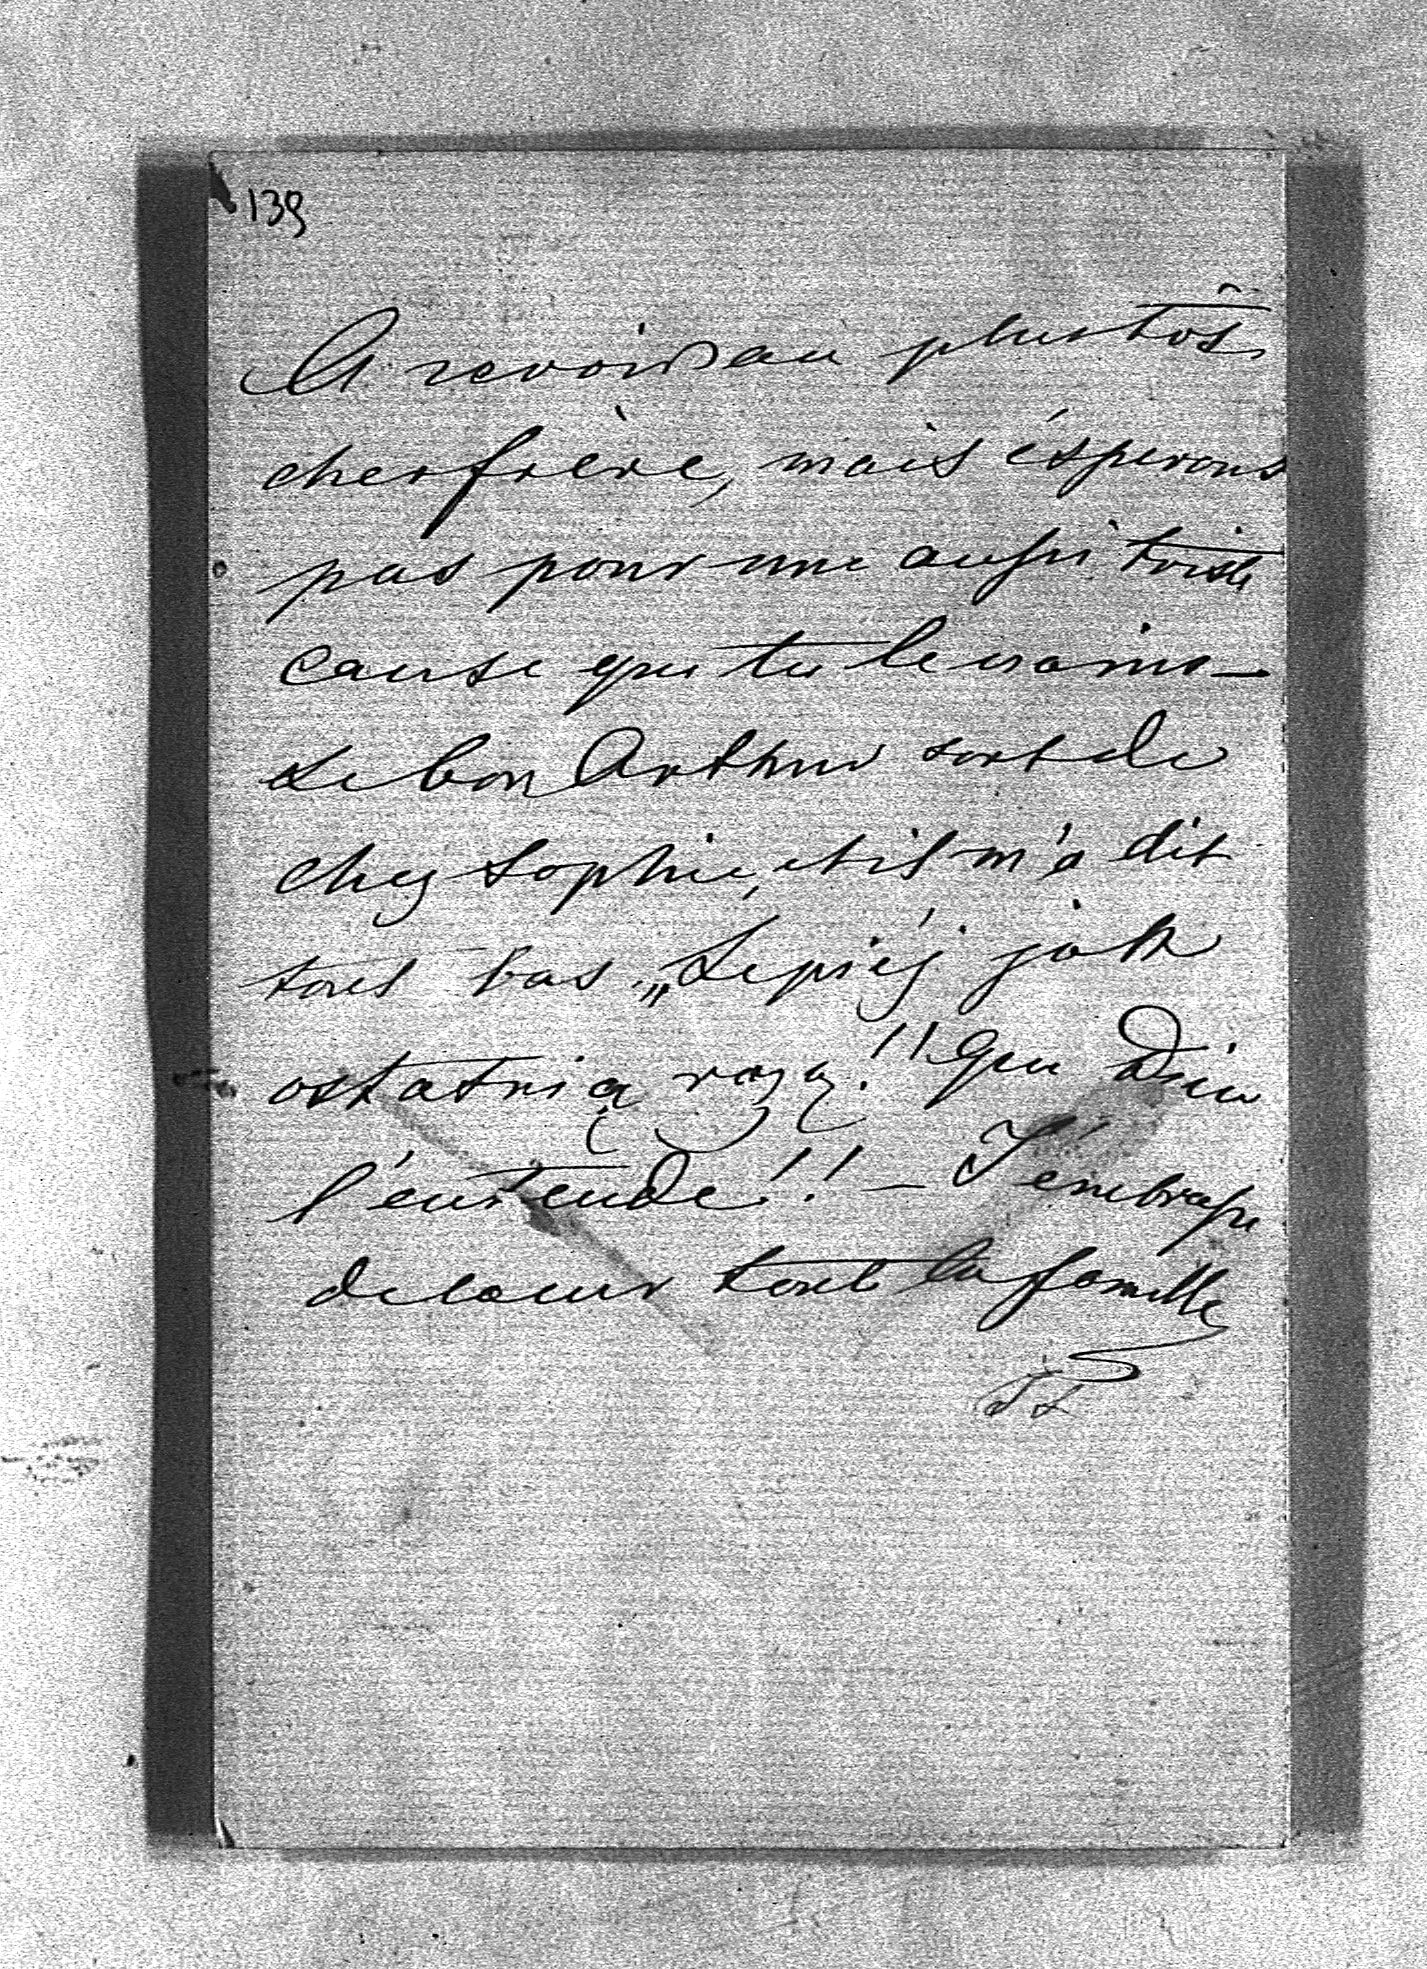 139
A revoir au plus tôt
cher frère, mais ésperons
pas pour une aussi triste
cause que tu le crains —
Le bon Arthur sort de
chez Sophie, et il m'a dit
tout bas „Lepiéj jak
ostatnią razą!" Que Dieu
l'éntende!! — J'émbrasse
de coeur tout la famille